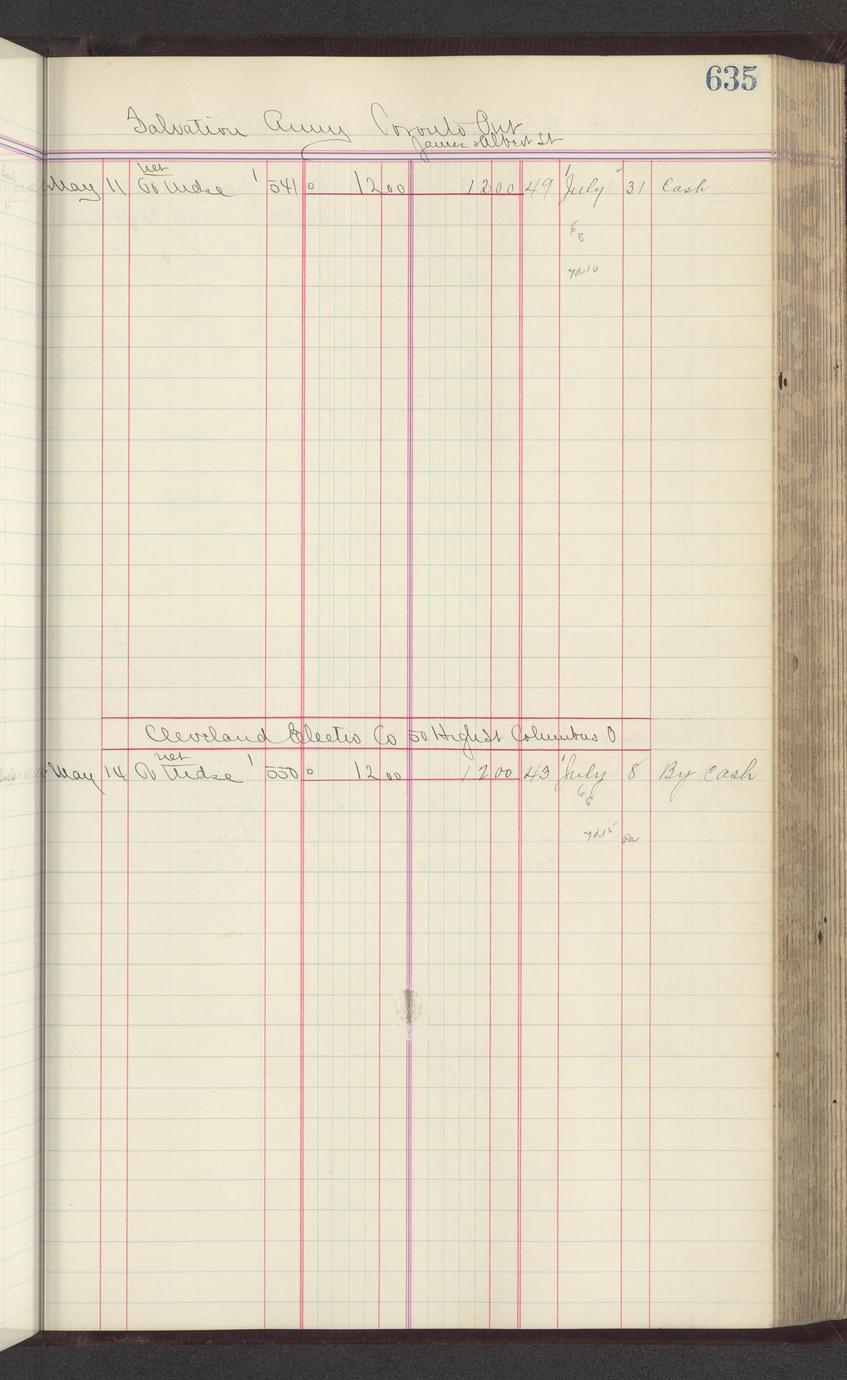 635
Salvation Army Toronto Ont
James & Albert St
net
May 11 To Mdse 1 541 0 12 00 12 00 49 July 31 Cash
6/8
7/2/10
Cleveland Electro Co 50 High St Columbus O
net
May 14 To Mdse 1 550 0 12 00 12 00 43 July 8 By Cash
6/8